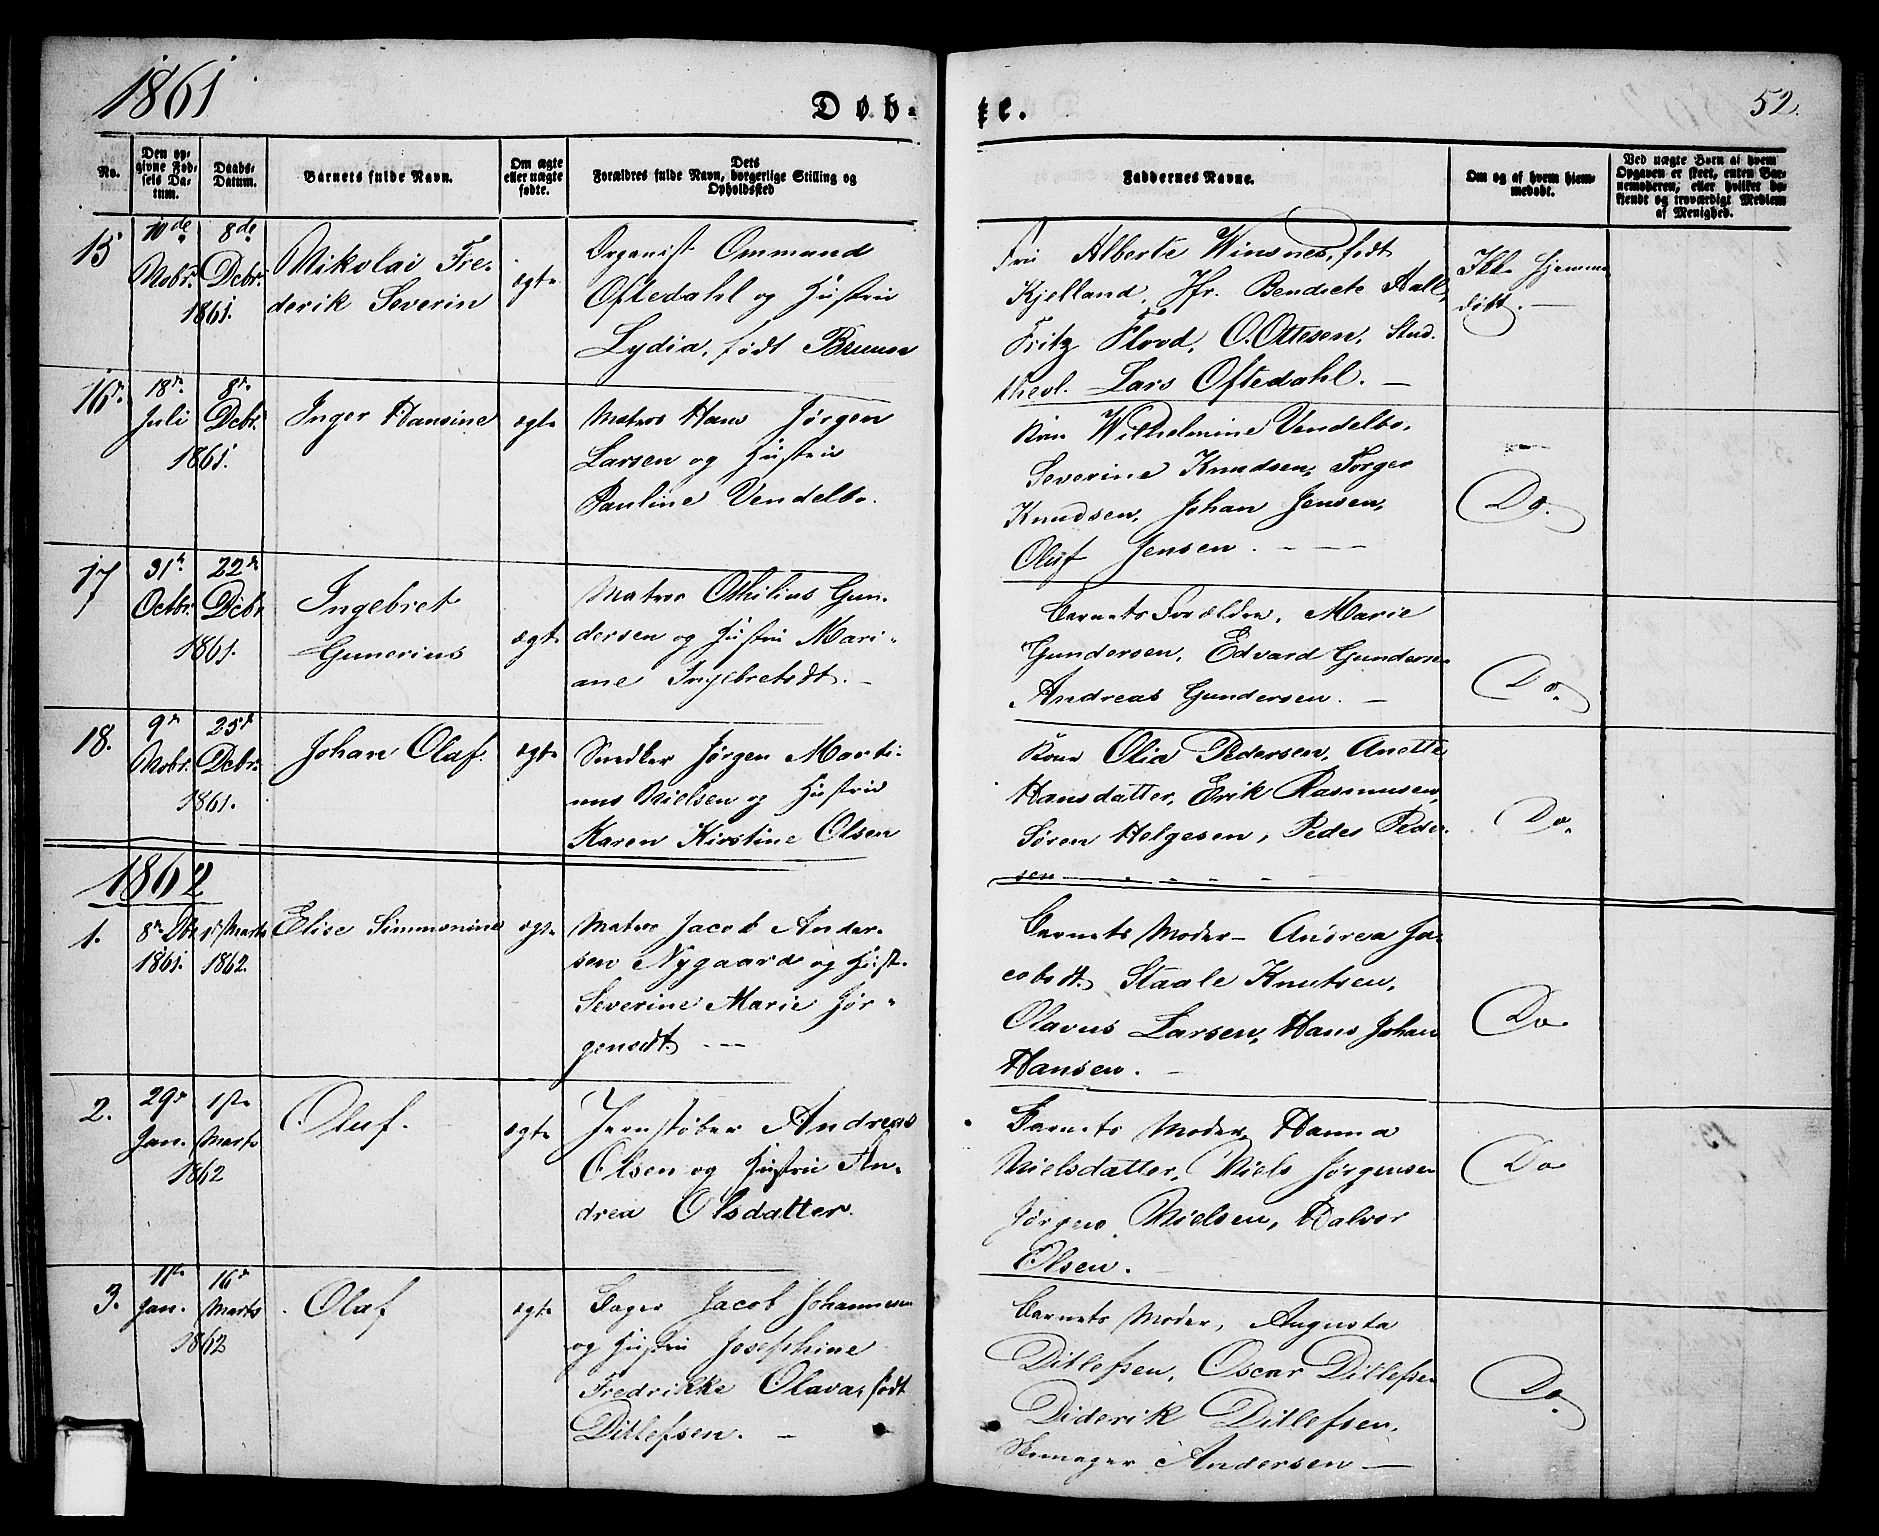 1861
Døb-
te.
52.
No.
Den opgivne Fødsels Datum.
Daabs-Datum.
Barnets fulde Navn.
Om ægte eller uægte fødte.
Dets Forældres fulde Navn, borgerlige Stilling og Opholdssted
Faddernes Navne.
Om og af hvem hjemmedøbt.
Ved uægte Børn af hvem Opgaven er skeet, enten Barnemoderen, eller hvilket bekjendt og troværdigt Medlem af Menighed.
15
10de Novbr.
8de Decbr.
1861.
Nikolai Fre-
derik Severin
ægte
Organist Ommund
Oftedahl og Hustru
Lydia, født Bruun
Fru Alberte Winsnes, født
Kjelland, Jfr. Bendicte Aall,
Fritz Flood, O. Ottesen, Stud.
theol. Lars Oftedahl. —
Ikke Hjemme
døbt. —
16.
18de Juli
8de Decbr.
1861.
Inger Hansine
ægte
Matros Hans Jørgen
Larsen og Hustru
Pauline Vendelbo.
Kone Wilhelmine Vendelbo,
Severine Knudsen, Torger
Knudsen, Johan Jensen,
Oluf Jensen. - - -
Do.
17
31te Octbr.
22de Decbr
1861.
Ingebret
Gunerius
ægte
Matros Othilius Gun-
dersen og Hustru Mari-
ane Ingebretsdt. -
Barnets Forældre, Marie
Gundersen, Edvard Gundersen
Andreas Gundersen. —
Do.
18.
9de Novbr.
25de Decbr.
1861.
Johan Olaf.
ægte
Snedker Jørgen Marti-
nus Nielsen og Hustru
Karen Kirstine Olsen
Kone Olia Pedersen, Anette
Hansdatter, Erik Rasmussen,
Søren Helgesen, Peder Peder-
sen - - - - -
Do.
1862
1.
8de Dbr 1861.
1ste Marts 1862.
Elise Simmonine
ægte
Matros Jacob Ander-
sen Nygaard og Hust.
Severine Marie Jør-
gensdt. - - -
Barnets Moder - Andrea Ja-
cobsdt. Staale Knutsen,
Olavus Larsen, Hans Johan
Hansen. -
Do
2.
29de Jan.
1ste Marts
1862
Oluf.
ægte
Jernstøber Andreas
Olsen og Hustru An-
drea Olsdatter.
Barnets Moder, Hanna
Nielsdatter, Niels Jørgensen
Jørgen Nielsen, Halvor
Olsen.
Do
3.
11te Jan.
16de Marts
1862
Olaf
ægte
Bager Jacob Johannesen
og Hustru Josephine
Fredrikke Olava, født
Ditlefsen. -
Barnets Moder, Augusta
Ditlefsen, Oscar Ditlefsen
Diderik Ditlefsen,
Skomager Andersen —
Do.